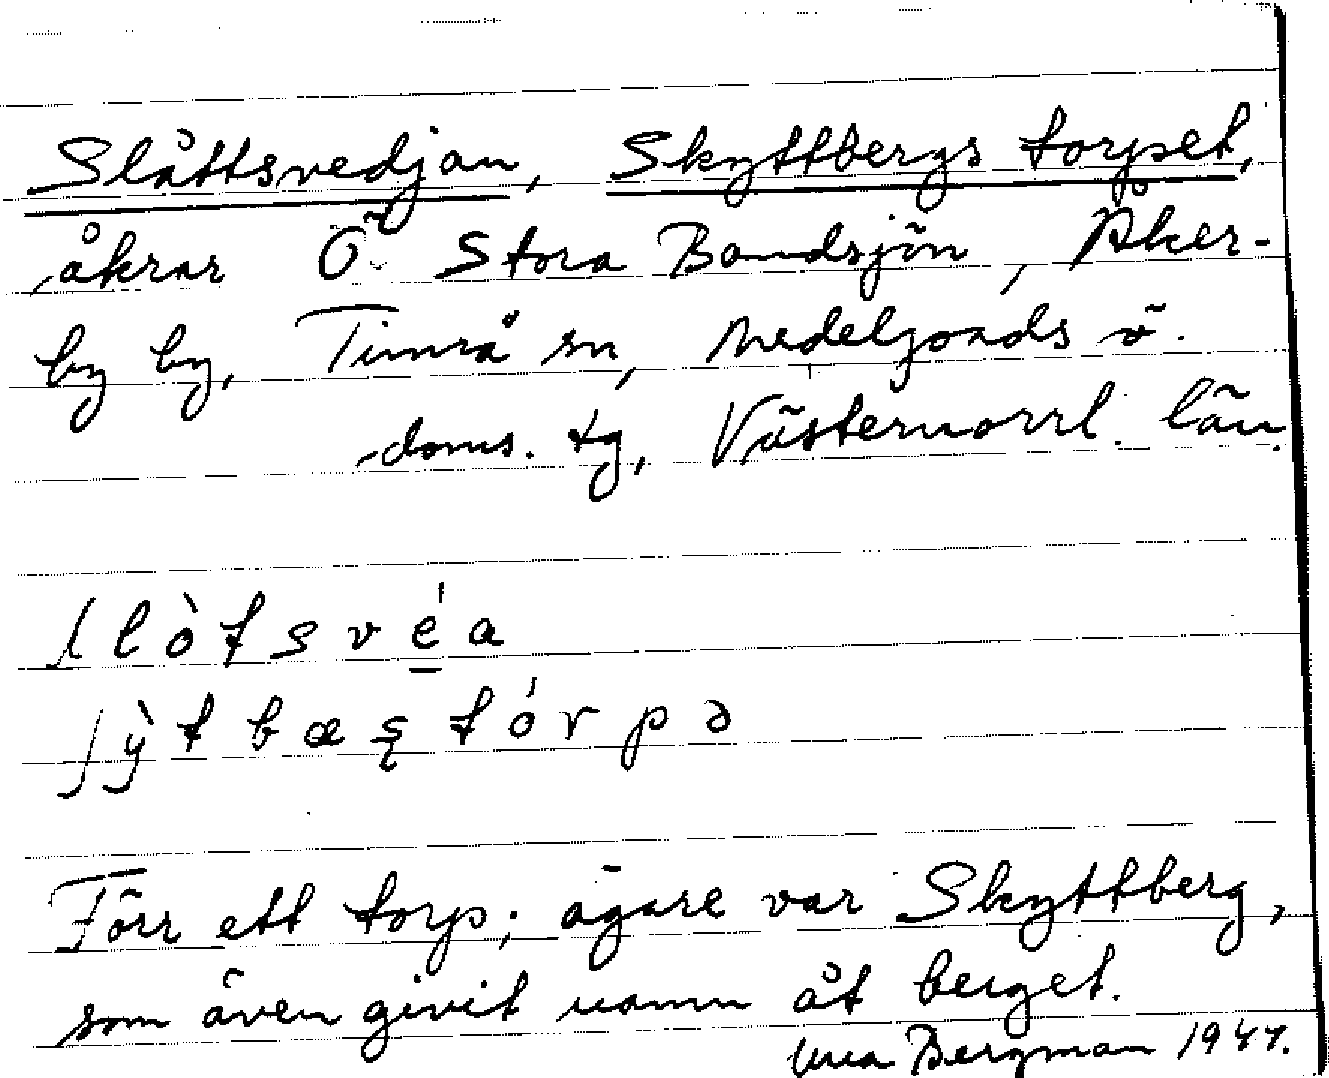 Slåttsvedjan, Skyttbergs torpet,
åkrar Ö Stora Bandsjön, Åker-
by by, Timrå sn, Medelpads ö.
doms. tg, Västernorrl. län.
ʃlòtsvéa
ʃỳtbæʂtórpə
Förr ett torp; ägare var Skyttberg,
som även givit namn åt berget.
Bergman 1947.